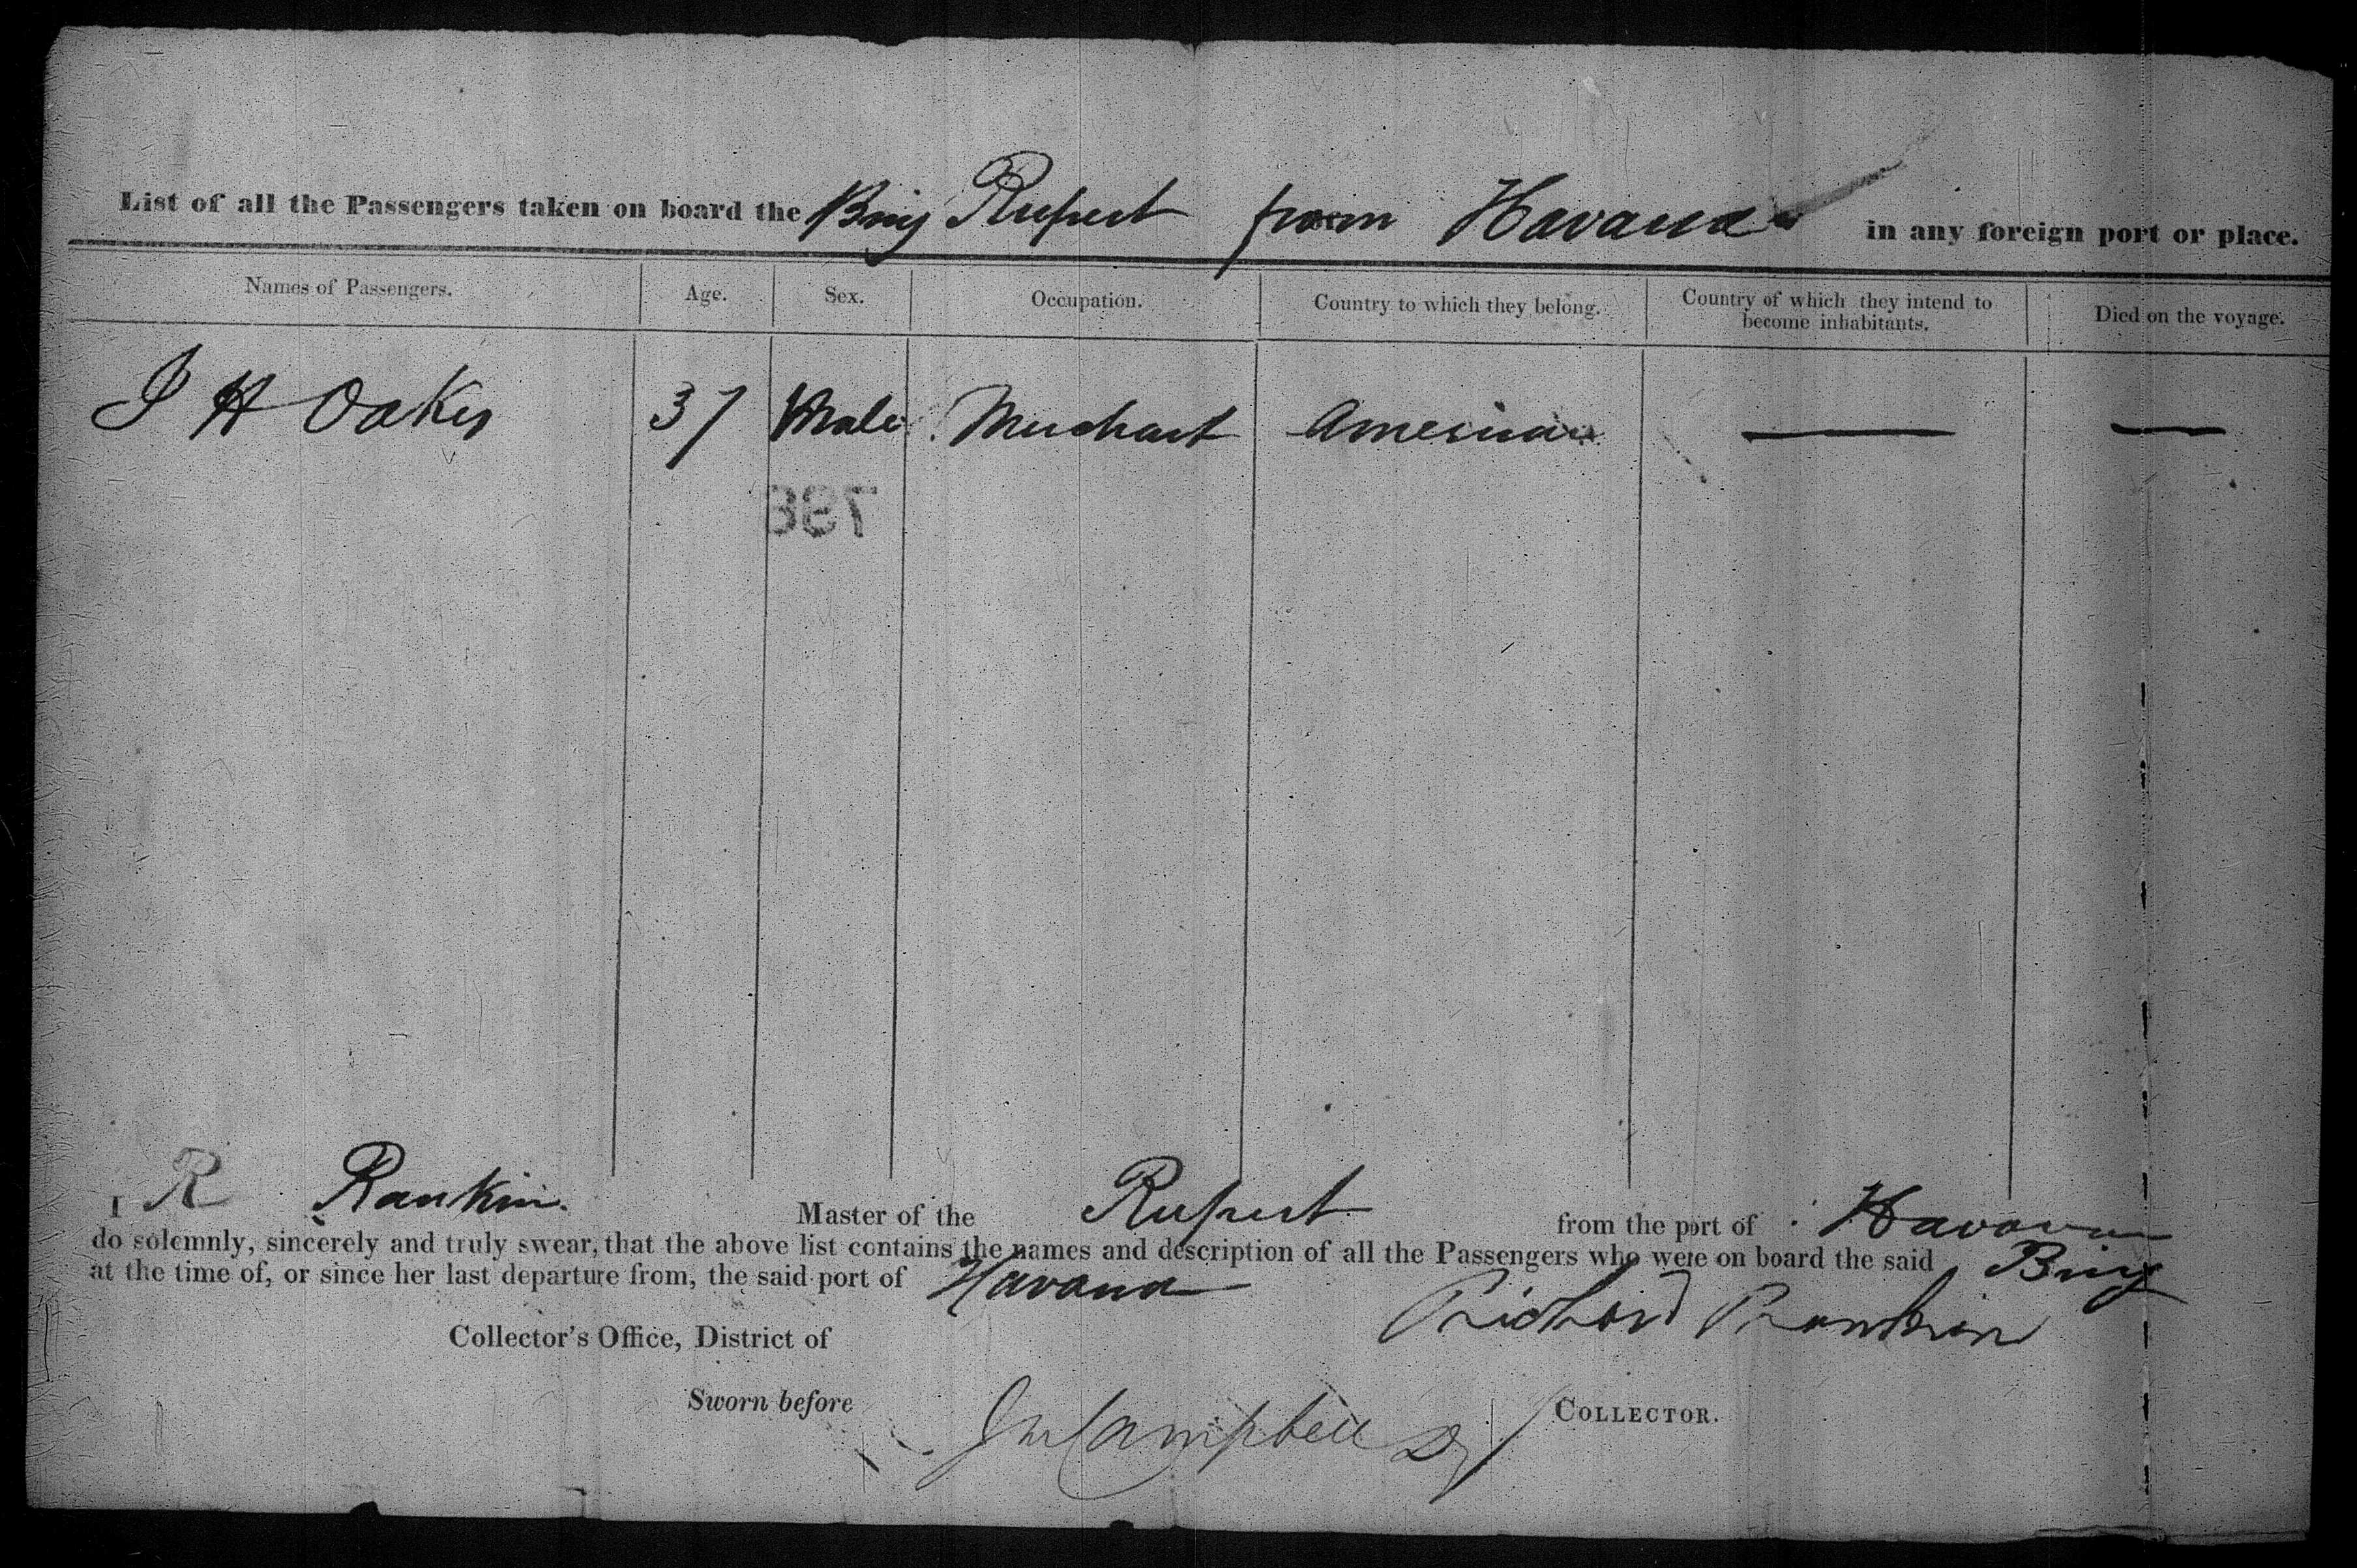 List of all the Passengers taken on board the Brig Rupert from Havana in any foreign port or place.
Names of Passengers. Age. Sex. Occupation. Country to which they belong. Country of which they intend to become inhabitants. Died on the voyage.
J H Oakes 37 Male Merchant American — —
798
I R Rankin. Master of the Rupert from the port of Havana
do solemnly, sincerely and truly swear, that the above list contains the names and description of all the Passengers who were on board the said Brig
at the time of, or since her last departure from, the said port of Havana
Richard Rankin
Collector's Office, District of
Sworn before Campbell Dy COLLECTOR.